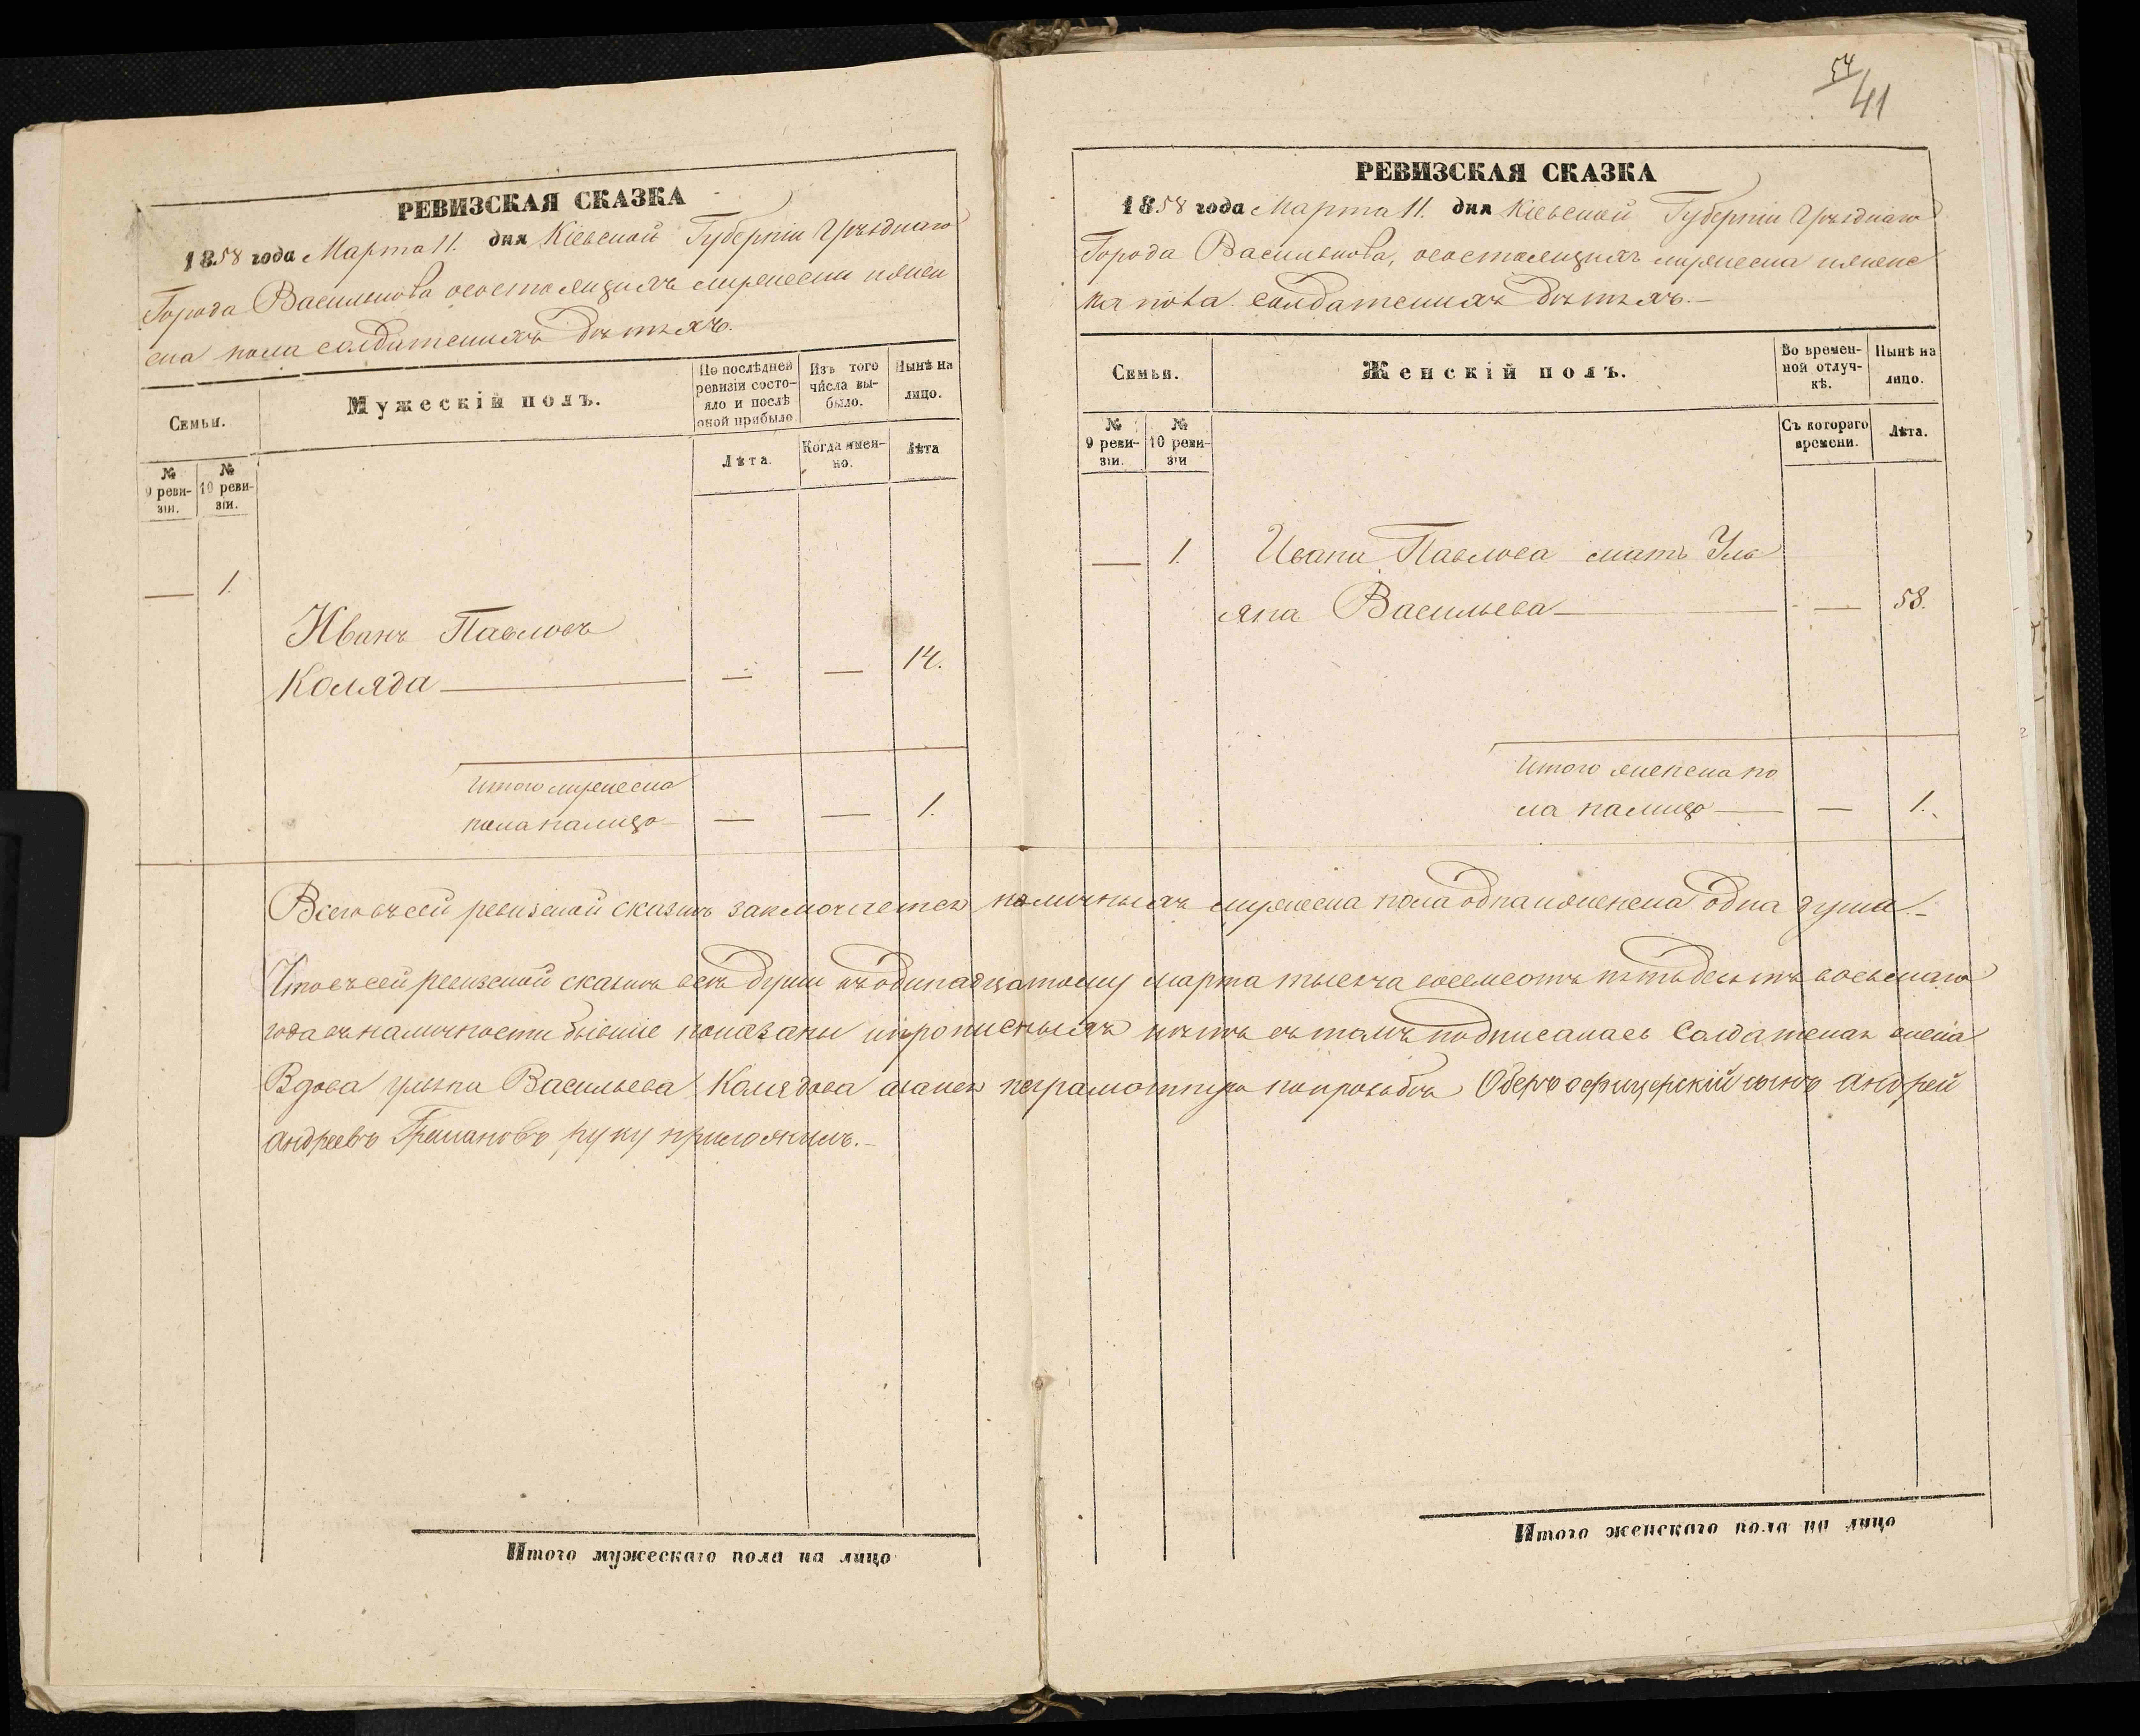 54/41
РЕВИЗСКАЯ СКАЗКА
1858 года Марта 11. дня Кіевской Губерніи Уѣзднаго
Города Василькова осостоящихъ мужеска иженс
ка пола солдатскихъ дѣтяхъ.
Семьи.
Мужескій полъ.
По послѣдней ревизіи состояло и послѣ оной прибыло.
Изъ того числа выбыло.
Нынѣ на лицо.
№ 9 ревизіи.
№ 10 ревизіи.
Лѣта.
Когда именно.
Лѣта
— 1.
Иванъ Павловъ
Коляда — — — 14.
Итого мужеска
пола налицо — — — 1.
РЕВИЗСКАЯ СКАЗКА
1858 года Марта 11. дня Кіевской Губерніи Уѣзднаго
Города Василькова, осостоящихъ мужеска иженс
ка пола солдатскихъ дѣтяхъ.—
Семьи.
Женскій полъ.
Во временной отлучкѣ.
Нынѣ на лицо.
№ 9 ревизіи.
№ 10 ревизіи
Съ котораго времени.
Лѣта.
— 1. Ивана Павлова мать Уль
яна Васильева — — 58.
Итого женска по
ла налицо — — 1.
Всего въ сей ревизской сказкѣ заключается наличныхъ мужеска пола одна иженска одна душа.—
Что въ сей ревизской сказкѣ всѣ души къ одинадцатому марта тысяча восемсотъ пятьдесятъ восьмаго
года въ наличности бывшіе показаны ипрописныхъ нѣтъ въ томъ подписалась Солдатская жена
Вдова Ульяна Васильева Колядова а занея неграмотную попрозьбѣ Оберъ офицерскій сынъ Андрей
Андреевъ руку приложилъ.—
Итого мужескаго пола на лицо
Итого женскаго пола на лицо